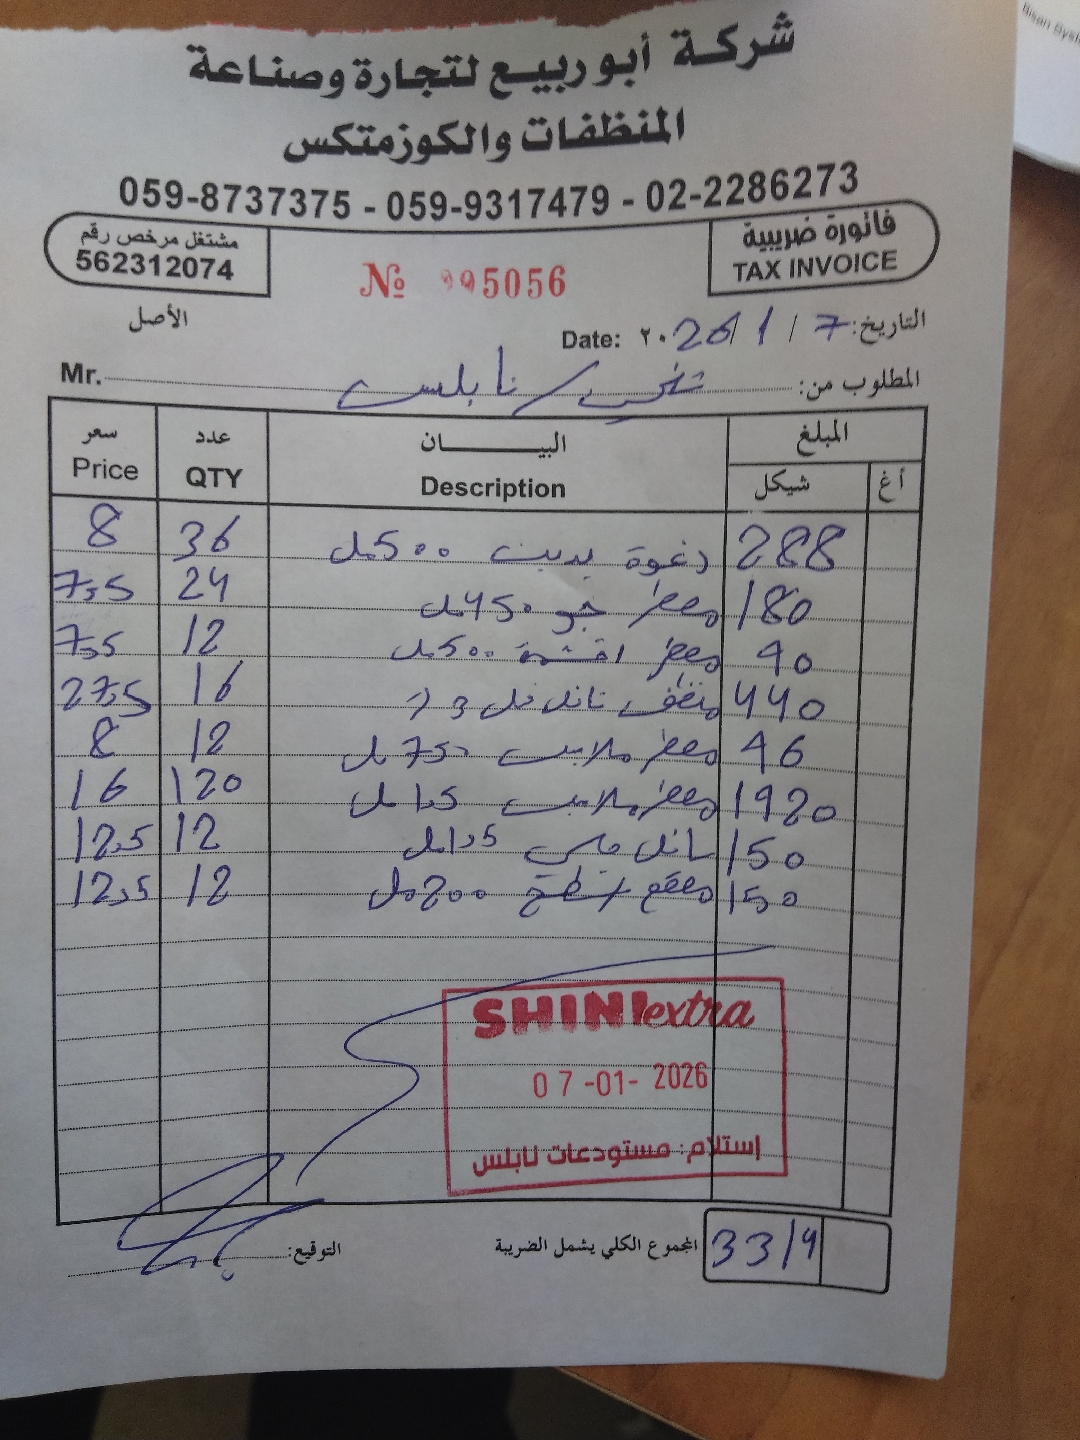 Bisan Syst
شركة أبو ربيع لتجارة وصناعة
المنظفات والكوزمتكس
059-8737375 - 059-9317479 - 02-2286273
مشتغل مرخص رقم
562312074
№ 005056
فاتورة ضريبية
TAX INVOICE
الأصل
Date: ٢٠26/1/7 التاريخ:
Mr. / نابلس المطلوب من:
سعر عدد البيان المبلغ
Price QTY Description شيكل أغ
8 36 رغوة بديت 500مل 288
7,5 24 معطر جو 450مل 180
7,5 12 معطر اقمشة 500مل 90
27,5 16 منظف 440
8 12 معطر ملابس 750مل 96
16 120 معطر ملابس 1,5مل 1920
12,5 12 150
12,5 12 اسطح 200مل 150
SHINIextra
07-01-2026
إستلام: مستودعات نابلس
التوقيع: المجموع الكلي يشمل الضريبة 3314